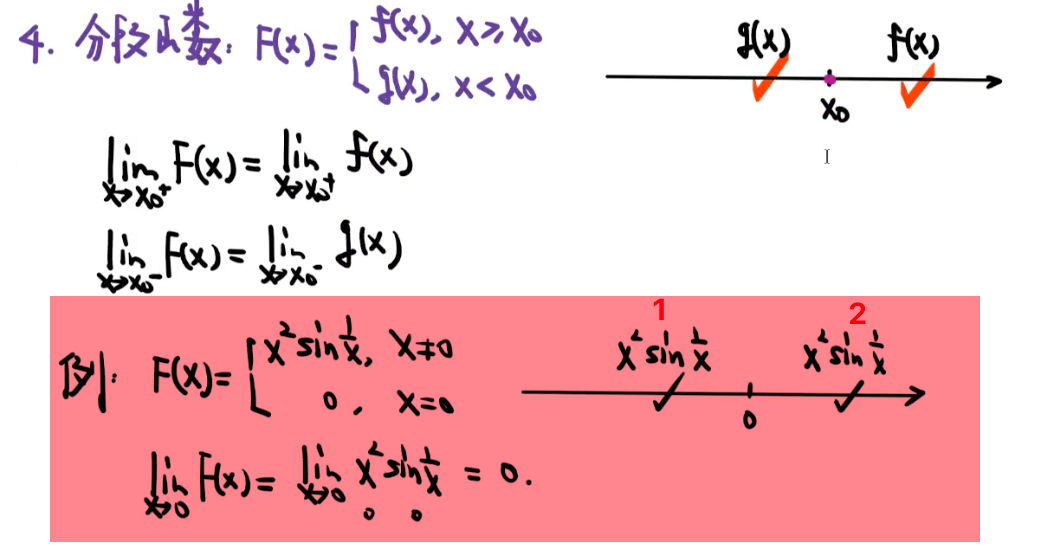 4. 分段函数: F(x) = { f(x), x ≥ x₀
g(x), x < x₀
g(x) f(x)
x₀
lim x→x₀⁺ F(x) = lim x→x₀⁺ f(x)
lim x→x₀⁻ F(x) = lim x→x₀⁻ g(x)
1 2
例: F(x) = { x² sin 1/x, x ≠ 0
0, x = 0
x² sin 1/x x² sin 1/x
0
lim x→0 F(x) = lim x→0 x² sin 1/x = 0.
0 0